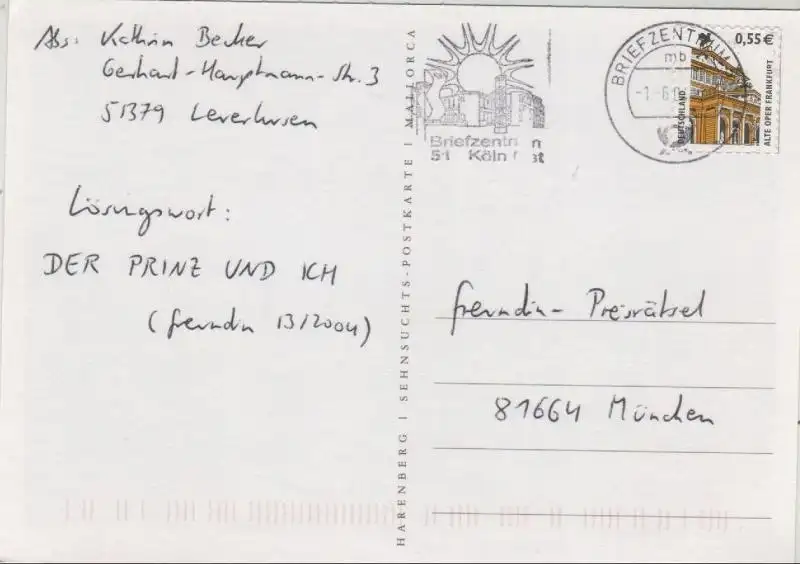 Abs: Kathrin Becker
Gerhart-Hauptmann-Str. 3
51379 Leverkusen
Lösungswort:
DER PRINZ UND ICH
(freundin 13/2004)
HARENBERG | SEHNSUCHTS-POSTKARTE | MALLORCA
Briefzentrum
51 Köln
BRIEFZENTRUM
mb
0,55 €
DEUTSCHLAND
ALTE OPER FRANKFURT
freundin-Preisrätsel
81664 München